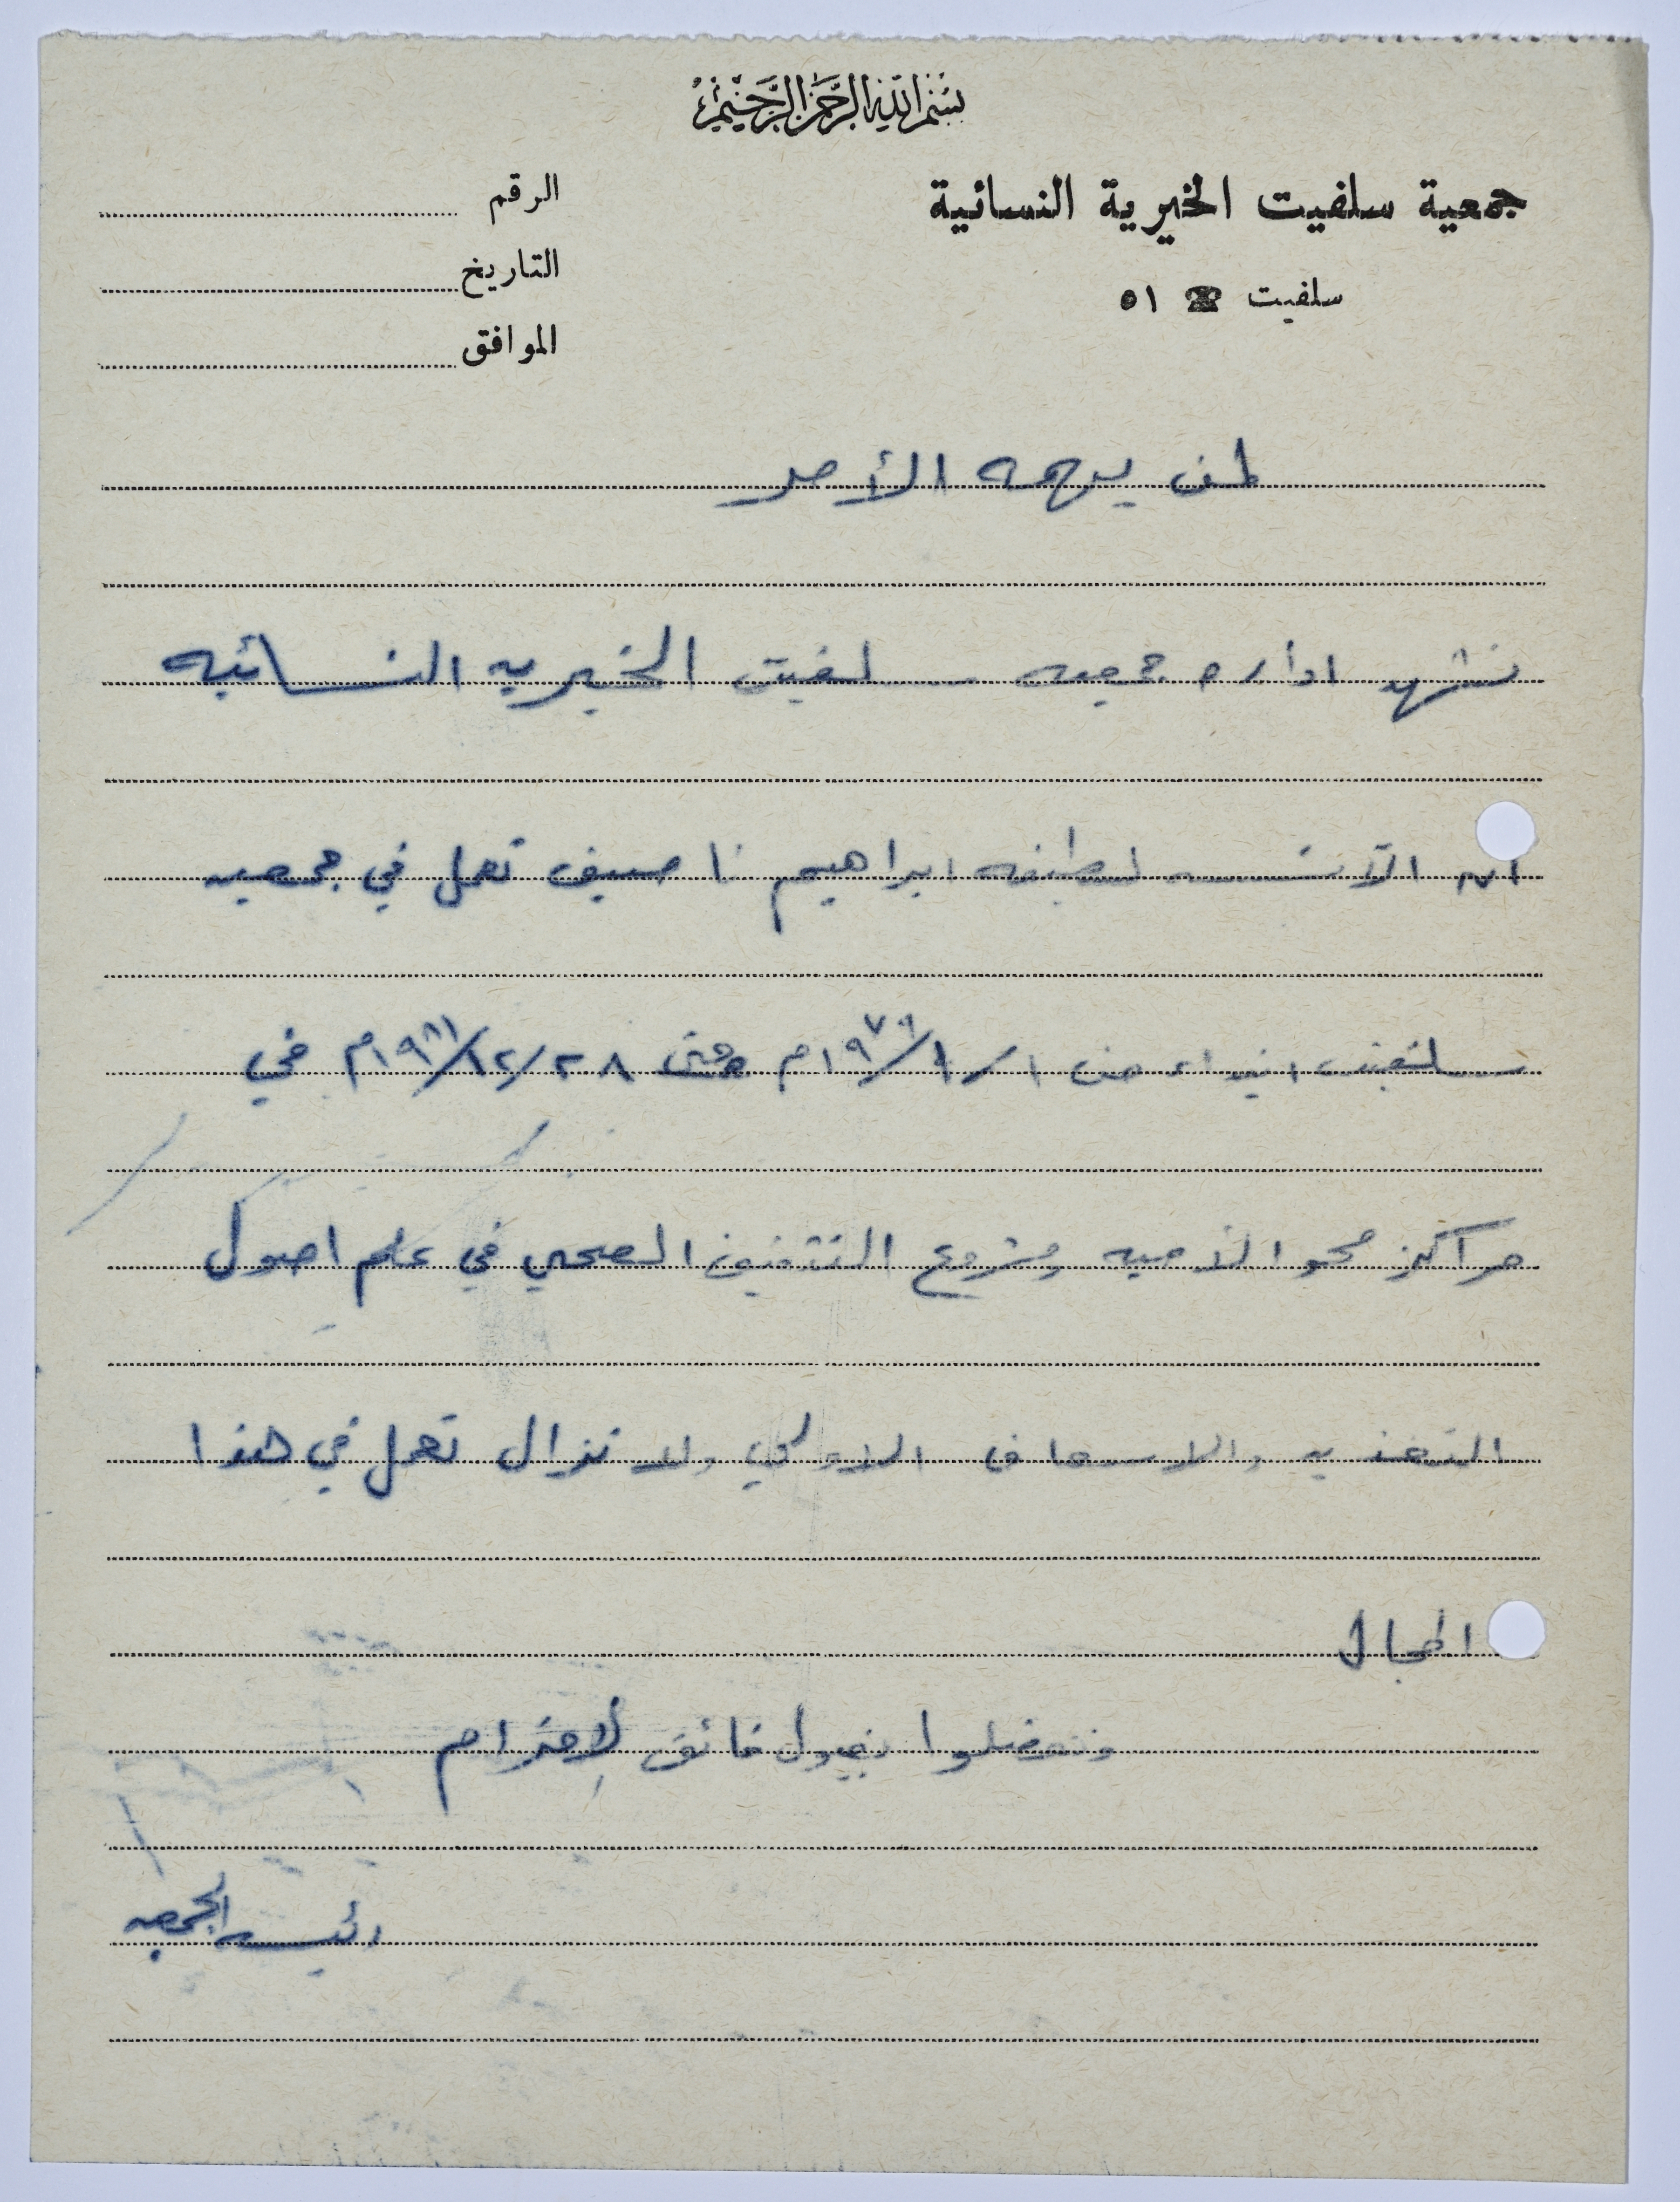 بسم الله الرحمن الرحيم
جمعية سلفيت الخيرية النسائية
سلفيت ☎ ٥١
الرقم
التاريخ
الموافق
لمن يهمه الأمر
تشهد اداره جمعيه سلفيت الخيريه النسائيه
ان الآنسه لطيفه ابراهيم ناصيف تعمل في جمعيه
سلفيت ابتداء من ١/١/١٩٧٩م وحتى ٢٨/١٢/١٩٨١م في
مراكز محو الأميه ومشروع التثقيف الصحي في علم اصول
التغذيه والاسعاف الاولي ولا تزال تعمل في هذا
المجال
وتفضلوا بقبول فائق الإحترام
رئيسه الجمعيه